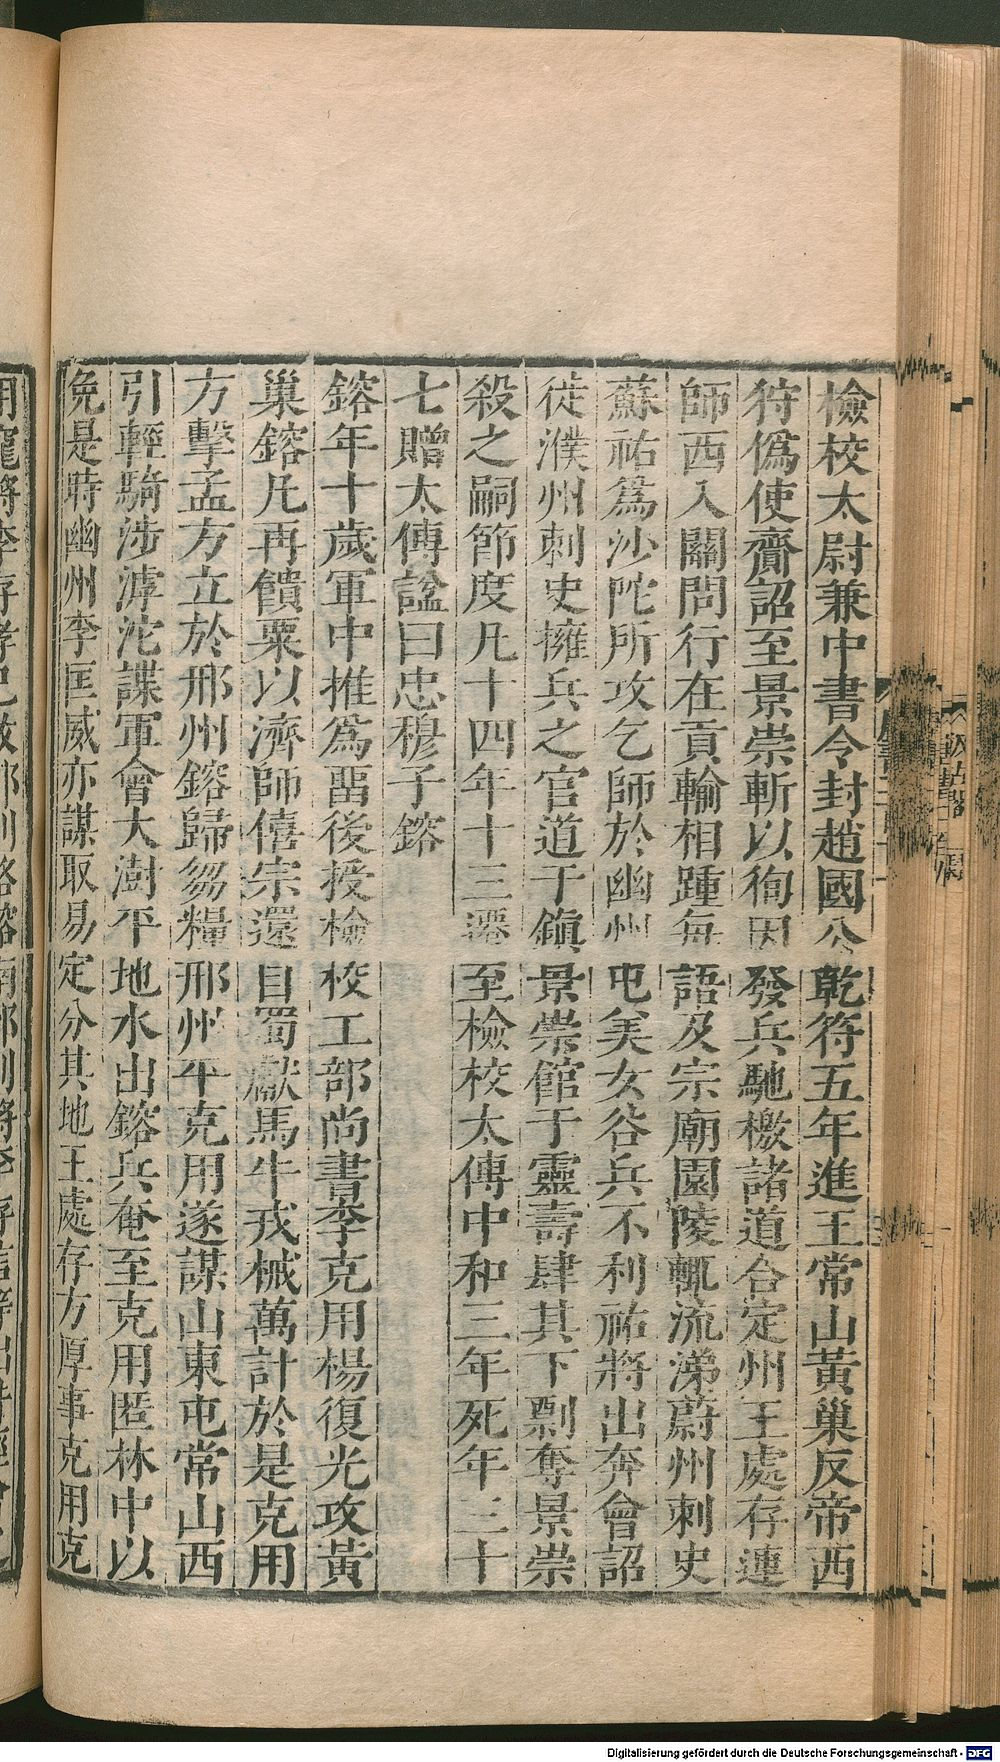 檢校太尉兼中書令封趙國公乾符五年進王常山黃巢反帝西
狩僞使齎詔至景崇斬以徇因發兵馳檄諸道合定州王處存連
師西入關問行在貢輸相踵每語及宗廟園陵輒流涕蔚州刺史
蘇祐爲沙陀所攻乞師於幽州屯美女谷兵不利祐將出奔會詔
徙濮州刺史擁兵之官道于鎭景崇館于靈壽肆其下剽奪景崇
殺之嗣節度凡十四年十三遷至檢校太傅中和三年死年三十
七贈太傅諡曰忠穆子鎔
鎔年十歲軍中推爲畱後授檢校工部尚書李克用楊復光攻黃
巢鎔凡再饋粟以濟師僖宗還自蜀獻馬牛戎械萬計於是克用
方擊孟方立於邢州鎔歸芻糧邢州平克用遂謀山東屯常山西
引輕騎涉滹沱諜軍會大澍平地水出鎔兵奄至克用匿林中以
免是時幽州李匡威亦謀取易定分其地王處存方厚事克用克
Digitalisierung gefördert durch die Deutsche Forschungsgemeinschaft - DFG